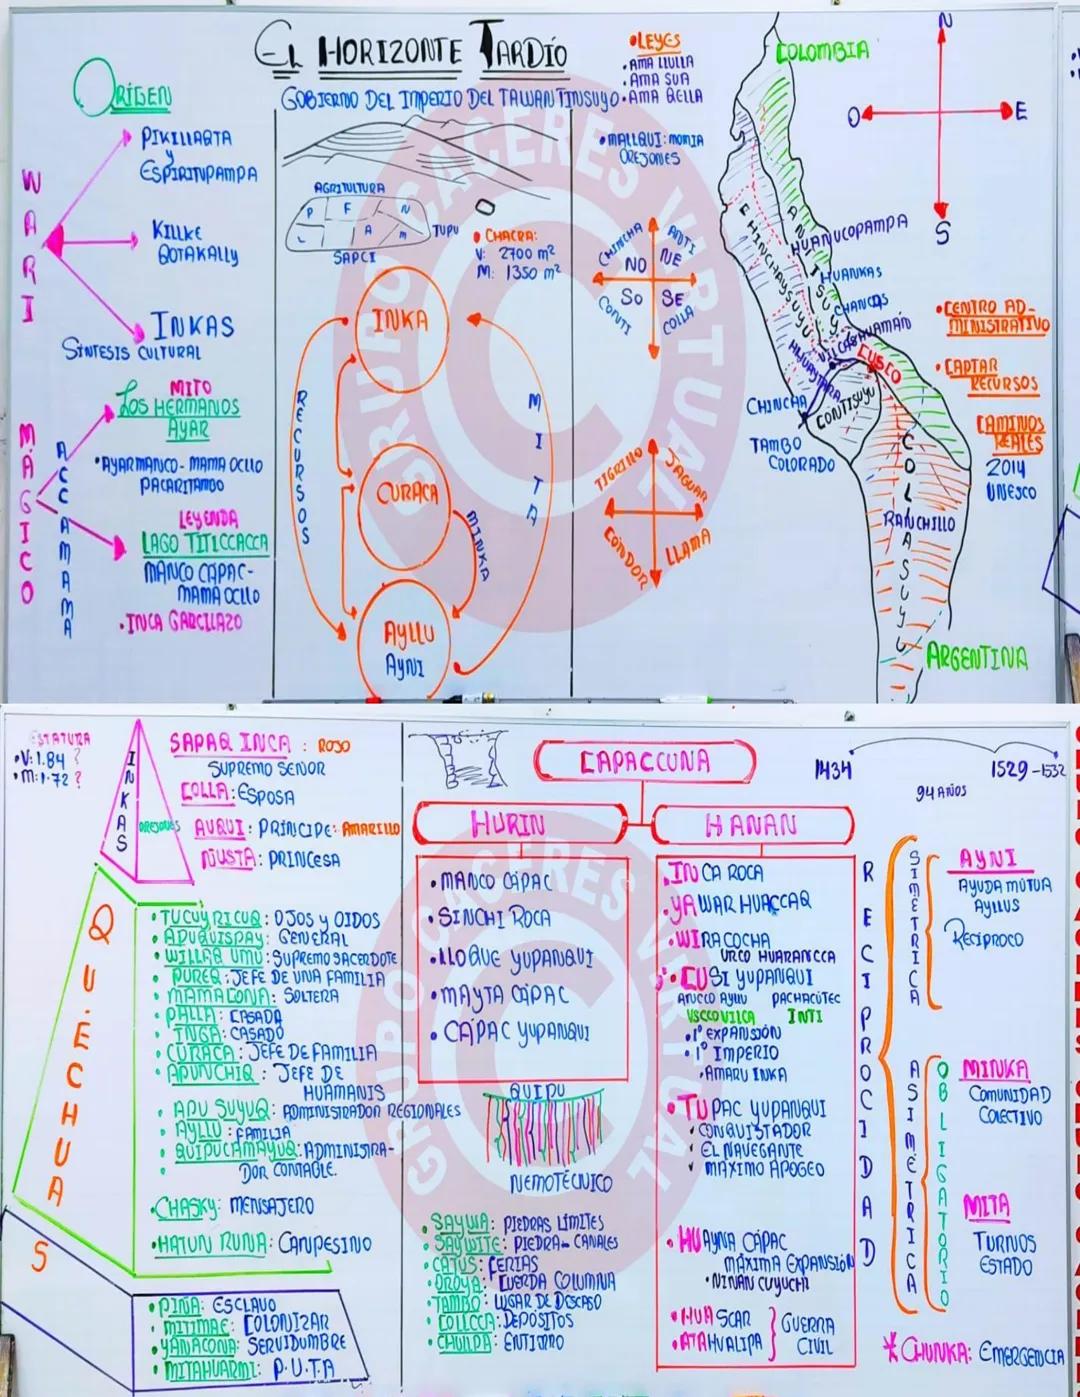 EL HORIZONTE TARDÍO
GOBIERNO DEL IMPERIO DEL TAWANTINSUYO
ORÍGEN
WARI
PIKILLAQTA
Y
ESPIRITUPAMPA
KILLKE
QOTAKALLY
INKAS
SÍNTESIS CULTURAL
MÁGICO
ACCAMAMA
MITO
LOS HERMANOS
AYAR
•AYARMANCO- MAMA OCLLO
PACARITAMBO
LEYENDA
LAGO TITICCACCA
MANCO CÁPAC-
MAMA OCLLO
•INCA GARCILAZO
AGRICULTURA
P F N
L A M
TUPU
SAPCI
•CHACRA:
V: 2700 m²
M: 1350 m²
INKA
RECURSOS
MITA
CURACA
MINKA
AYLLU
AYNI
•LEYES
•AMA LLULLA
•AMA SUA
•AMA QELLA
•MALLQUI: MOMIA
OREJONES
CHINCHA ANTI
NO NE
SO SE
CONTI COLLA
TIGRILLO JAGUAR
CÓNDOR LLAMA
COLOMBIA
N
O E
S
CHINCHAYSUYU
ANTISUYU
HUANUCOPAMPA
HUANKAS
CHANCAS
VILCASHUAMÁN
HUAYTARA
CUSCO
CHINCHA
CONTISUYU
TAMBO
COLORADO
COLLASUYU
RANCHILLO
ARGENTINA
•CENTRO AD-
MINISTRATIVO
•CAPTAR
RECURSOS
CAMINOS
REALES
2014
UNESCO
GRUPO CACERES VIRTUAL
ESTATURA
•V: 1.84 ?
•M: 1.72 ?
INKAS
OREJONES
SAPAQ INCA : ROJO
SUPREMO SEÑOR
COLLA: ESPOSA
AUQUI: PRÍNCIPE: AMARILLO
ÑUSTA: PRINCESA
QUÉCHUAS
•TUCUYRICUQ: OJOS Y OIDOS
•APUQUISPAY: GENERAL
•WILLAQ UMU: SUPREMO SACERDOTE
•PUREQ: JEFE DE UNA FAMILIA
•MAMACONA: SOLTERA
•PALLA: CASADA
•INGA: CASADO
•CURACA: JEFE DE FAMILIA
•APUNCHIQ: JEFE DE
HUAMANIS
•APU SUYUQ: ADMINISTRADOR REGIONALES
•AYLLU: FAMILIA
•QUIPUCAMAYUQ: ADMINISTRA-
DOR CONTABLE.
•CHASKY: MENSAJERO
•HATUN RUNA: CAMPESINO
•PIÑA: ESCLAVO
•MITIMAE: COLONIZAR
•YANACONA: SERVIDUMBRE
•MITAHUARMI: P.U.T.A
CAPACCUNA
HURIN
•MANCO CÁPAC
•SINCHI ROCA
•LLOQUE YUPANQUI
•MAYTA CÁPAC
•CÁPAC YUPANQUI
QUIPU
NEMOTÉCNICO
•SAYWA: PIEDRAS LÍMITES
•SAYWITE: PIEDRA- CANALES
•CATUS: FERIAS
•OROYA: CUERDA COLUMNA
•TAMBO: LUGAR DE DESCASO
•COLLCCA: DEPÓSITOS
•CHULPA: ENTIERRO
HANAN
•INCA ROCA
•YAWAR HUACCAQ
•WIRACOCHA
URCO HUARANCCA
•CUSI YUPANQUI
PACHACÚTEC
USCCOVILCA INTI
•1º EXPANSIÓN
•1º IMPERIO
•AMARU INKA
•TUPAC YUPANQUI
✓ CONQUISTADOR
✓ EL NAVEGANTE
✓ MÁXIMO APOGEO
•HUAYNA CÁPAC
MÁXIMA EXPANSIÓN
•NINAN CUYUCHI
•HUASCAR
•ATAHUALIPA
GUERRA
CIVIL
1434 1529-1532
94 AÑOS
RECIPROCIDAD
SIMÉTRICA
AYNI
AYUDA MUTUA
AYLLUS
RECÍPROCO
ASIMÉTRICA
OBLIGATORIO
MINKA
COMUNIDAD
COLECTIVO
MITA
TURNOS
ESTADO
*CHUNKA: EMERGENCIA
GRUPO CACERES VIRTUAL